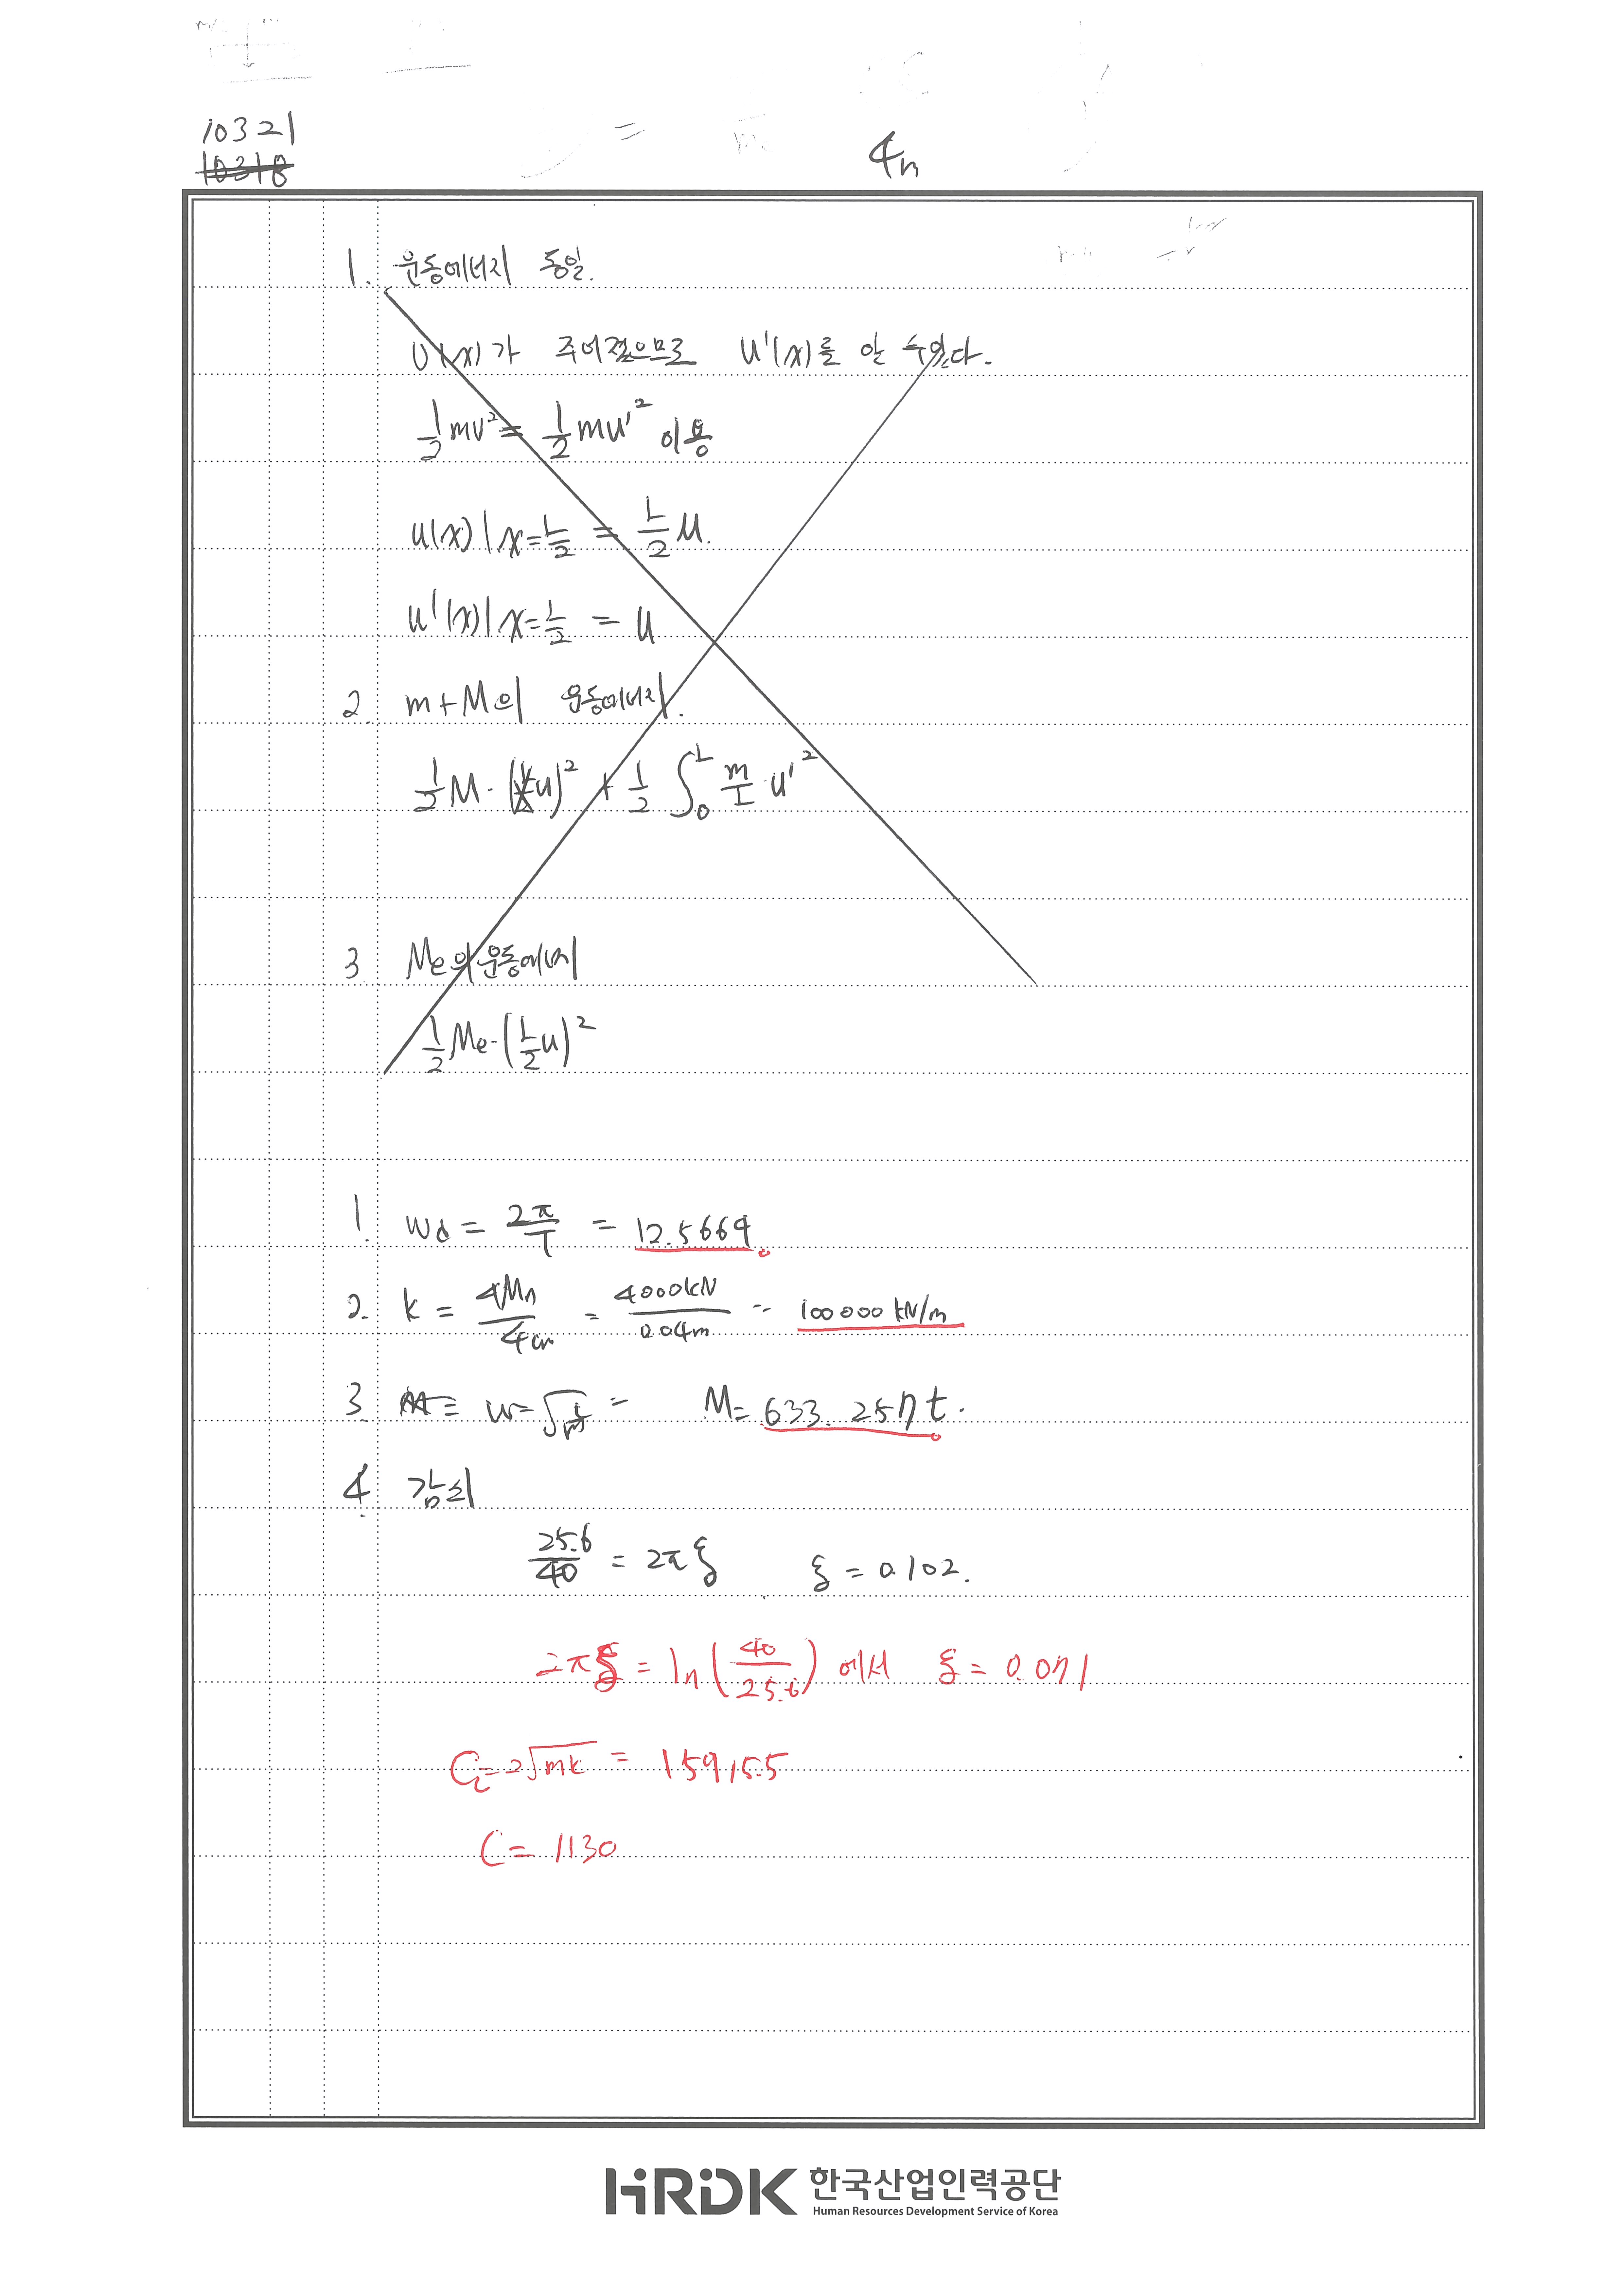 10321
10318
4n
1. 운동에너지 동일.
U(x)가 주어졌으므로 u'(x)를 알 수 있다.
1/2 mv² = 1/2 mu'² 이용
u(x)|x=L/2 = L/2 u.
u'(x)|x=L/2 = u
2. m+M의 운동에너지.
1/2 M·(u)² + 1/2 ∫₀ᴸ m/L·u'²
3 Me의 운동에너지
1/2 Me·(L/2 u)²
1. wd = 2π/T = 12.5664
2. k = 4Mn/4cm = 4000kN/0.04m = 100000 kN/m
3. w=√k/m = M= 633.257t.
4. 감쇠
25.6/40 = 2πξ ξ = 0.102.
2πξ = ln(40/25.6) 에서 ξ = 0.071
Cc=2√mk = 15915.5
C = 1130
HRDK 한국산업인력공단
Human Resources Development Service of Korea